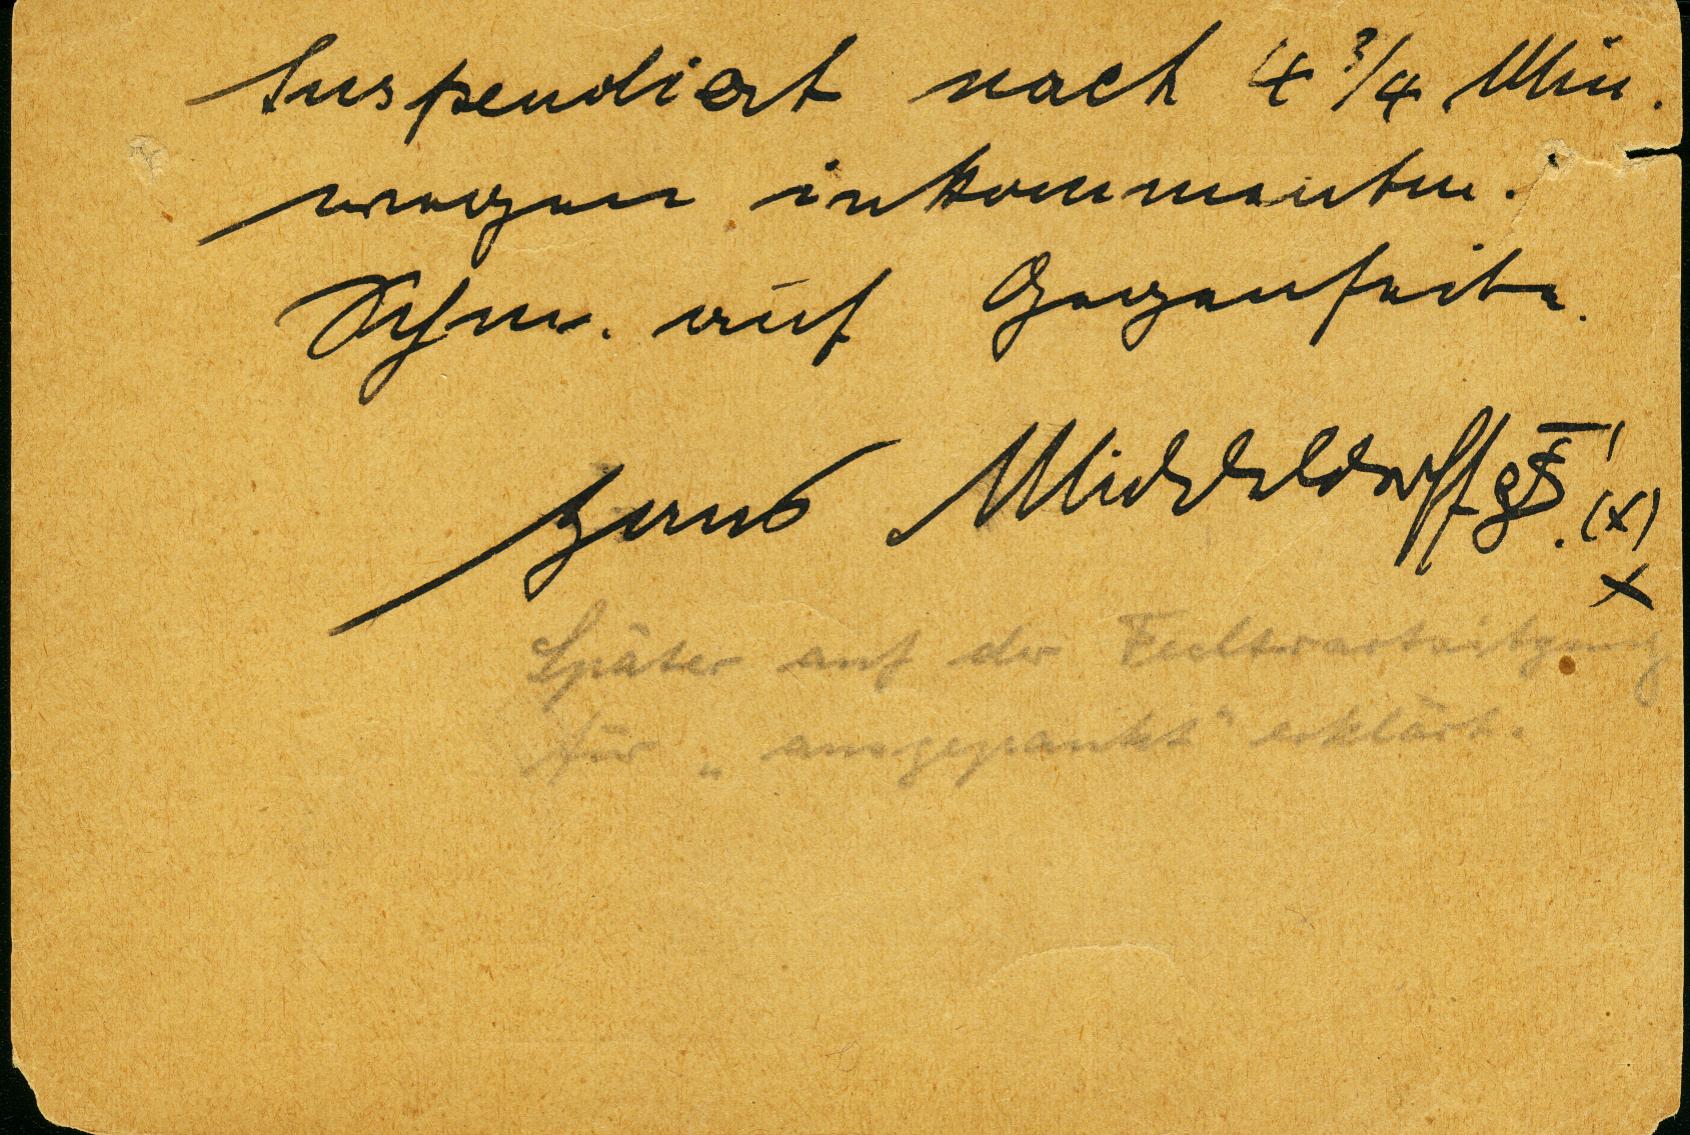 Suspendiert nach 4 3/4 Min.
wegen inkommentm.
auf Gegenseite.
Hans Middeldorff
(x)
x
Später auf der Fechtwartsitzung
für „ausgepaukt“ erklärt.